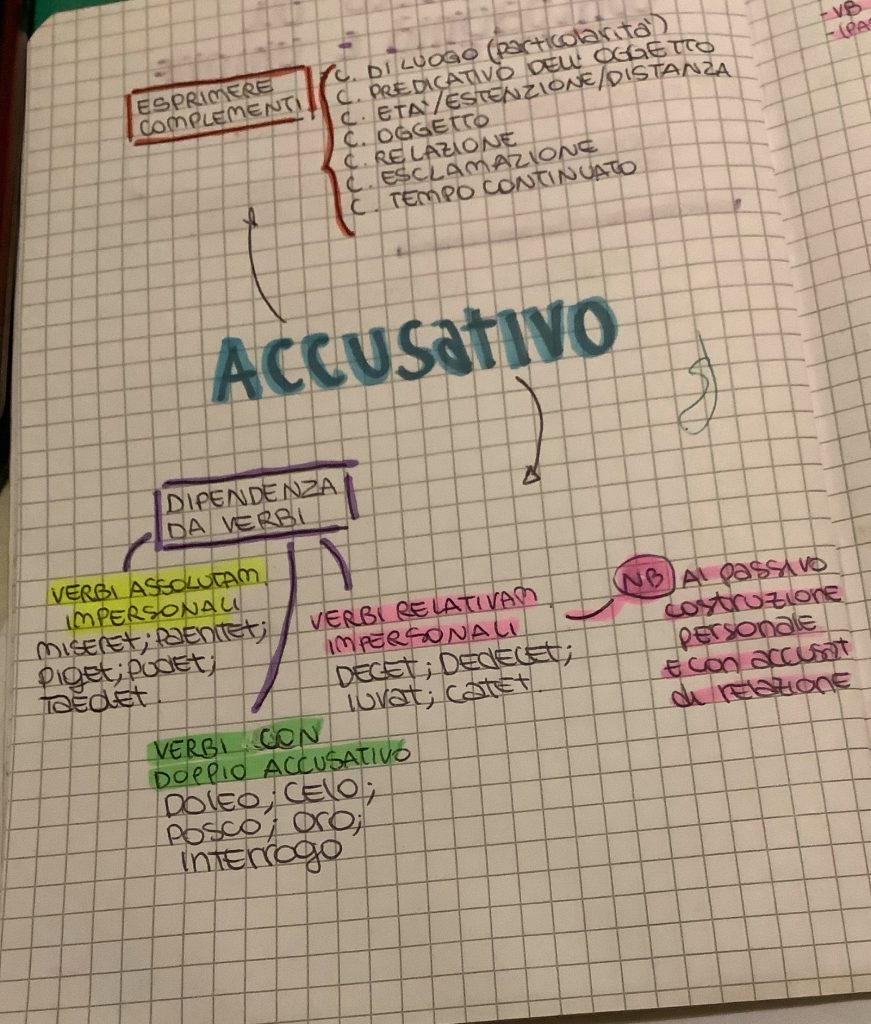 - VB
- (PA
ESPRIMERE
COMPLEMENTI
C. DI LUOGO (particolarità)
C. PREDICATIVO DELL'OGGETTO
C. ETA'/ESTENZIONE/DISTANZA
C. OGGETTO
C. RELAZIONE
C. ESCLAMAZIONE
C. TEMPO CONTINUATO
ACCUSATIVO
DIPENDENZA
DA VERBI
VERBI ASSOLUTAM.
IMPERSONALI
MISERET; PAENITET;
PIGET; PUDET;
TAEDET.
VERBI RELATIVAM.
IMPERSONALI
DECET; DEDECET;
IUVAT; LATET.
NB Al passivo
costruzione
personale
E con accusat
di relazione
VERBI CON
DOPPIO ACCUSATIVO
DOCEO; CELO;
POSCO; ORO;
INTERROGO